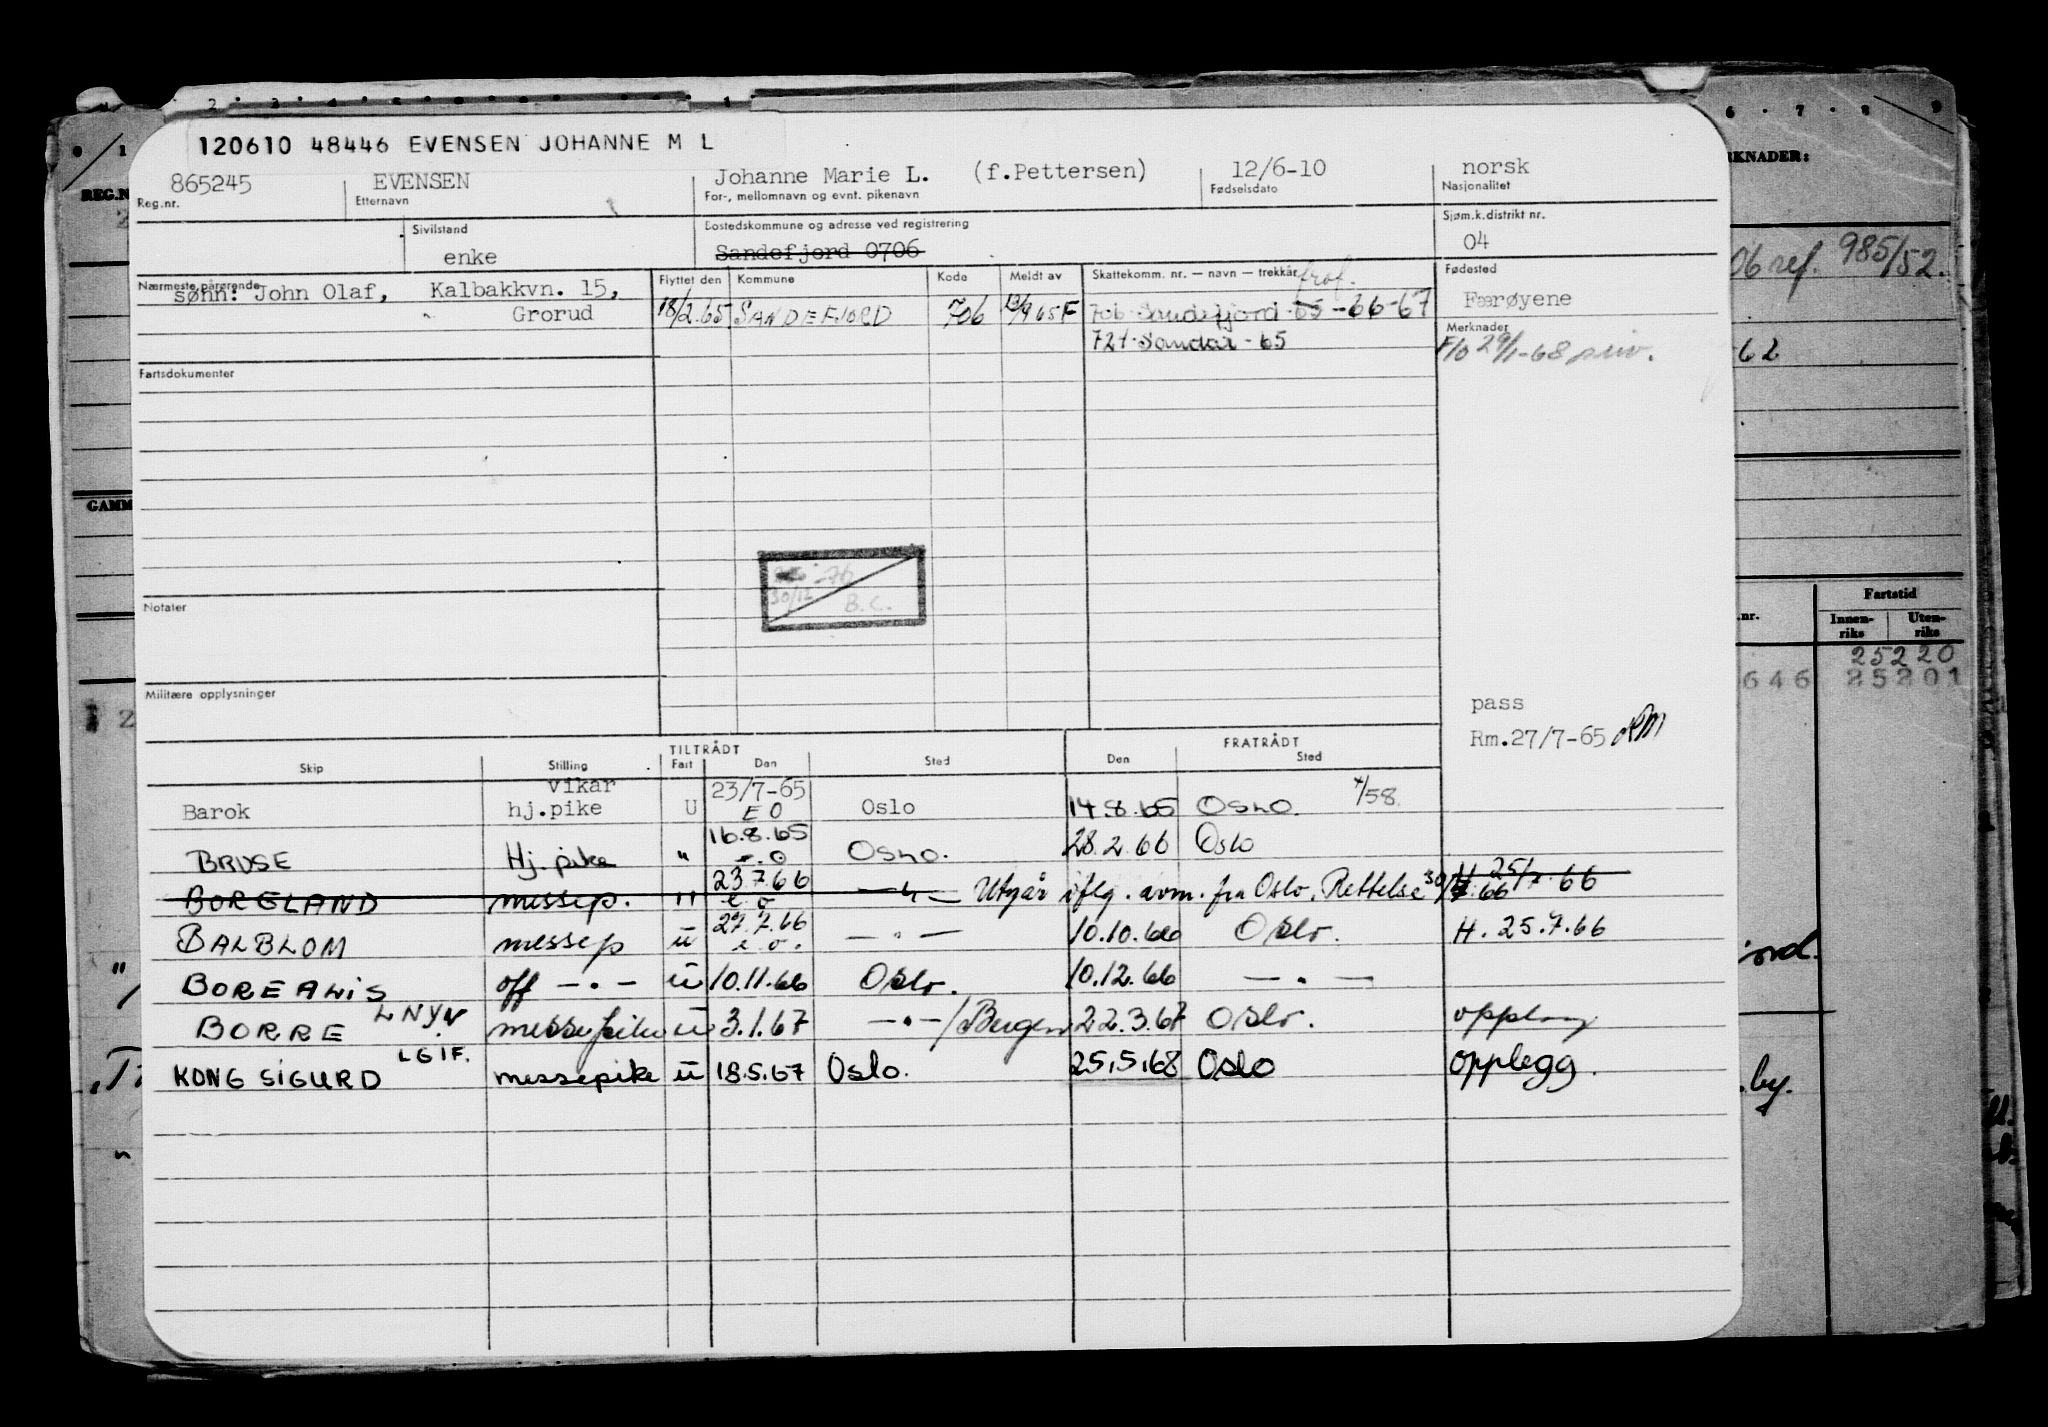 120610 48446 EVENSEN JOHANNE M L
865245 EVENSEN Johanne Marie L. (f.Pettersen) 12/6-10 norsk
Reg.nr. Etternavn For-, mellomnavn og evnt. pikenavn Fødselsdato Nasjonalitet
Sivilstand Bostedskommune og adresse ved registrering Sjøm.k.distrikt nr.
enke Sandefjord 0706 04
Nærmeste pårørende Flyttet den Kommune Kode Meldt av Skattekomm. nr. — navn — trekkår Fødested
sønn: John Olaf, Kalbakkvn. 15,
Grorud 18/2.65 SANDEFJORD 706 706 Sandefjord -65 -66-67 Færøyene
Merknader
721 Sandar - 65 F/o 29/1-68
Fartsdokumenter
Notater
30/12 B.C.
Militære opplysninger
pass
Rm.27/7-65
TILTRÅDT FRATRÅDT
Skip Stilling Fart Den Sted Den Sted
vikar 23/7-65
Barok hj.pike U EO Oslo 14.8.65 OSLO. 4/58
BRUSE Hj.pike " 16.8.65 OSLO. 28.2.66 Oslo
BORELAND messep. " 23.7.66 e o — " — Utgår iflg. avm. fra Oslo, Rettelse 30/ H 25/7.66
BALBLOM messep u 27.7.66 e.o. — " — 10.10.66 Oslo. H. 25.7.66
BOREALIS off — " — u 10.11.66 Oslo. 10.12.66 — " —
LNYN
BORRE messepike u 3.1.67 — " —/Bergen 22.3.67 Oslo. opplegg
LGIF.
KONG SIGURD messepike u 18.5.67 Oslo. 25.5.68 Oslo opplegg.
REG.N
GAMM
RKNADER:
06 ref. 985/52.
62
Fartstid
.nr. Innen-riks Uten-riks
25220
646 25201
ord.
.by.